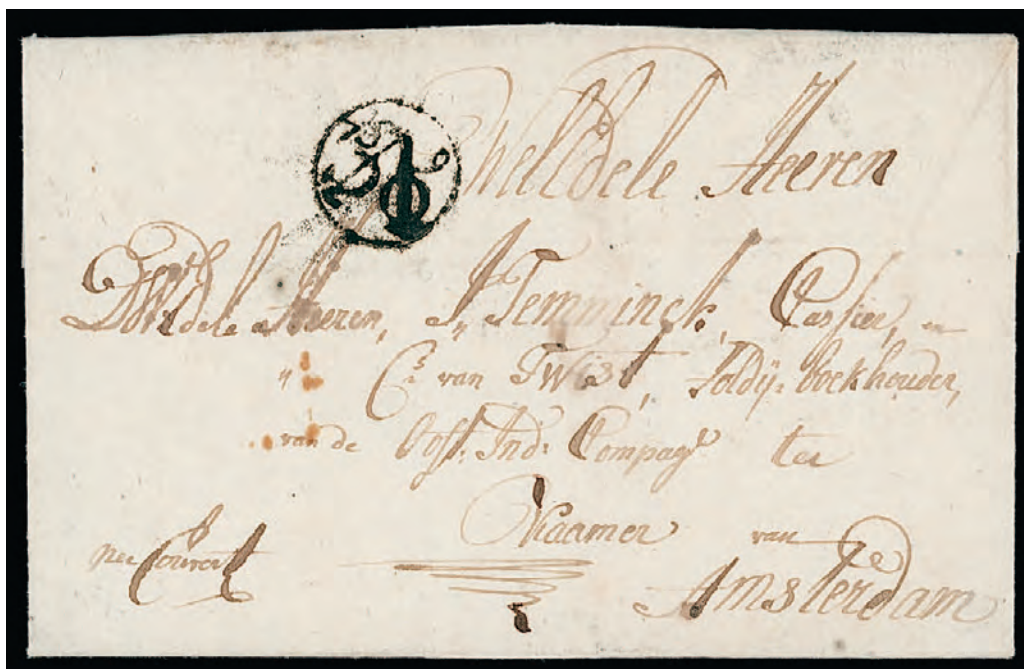 WelEdele Heeren
WelEdele Heeren, J„ Temminck, Cassier, en
„ C.s van Twist, Soldij: boekhouder,
van de Oost: Ind: Compag.e ter
Kaamer van
per Couvert
Amsterdam